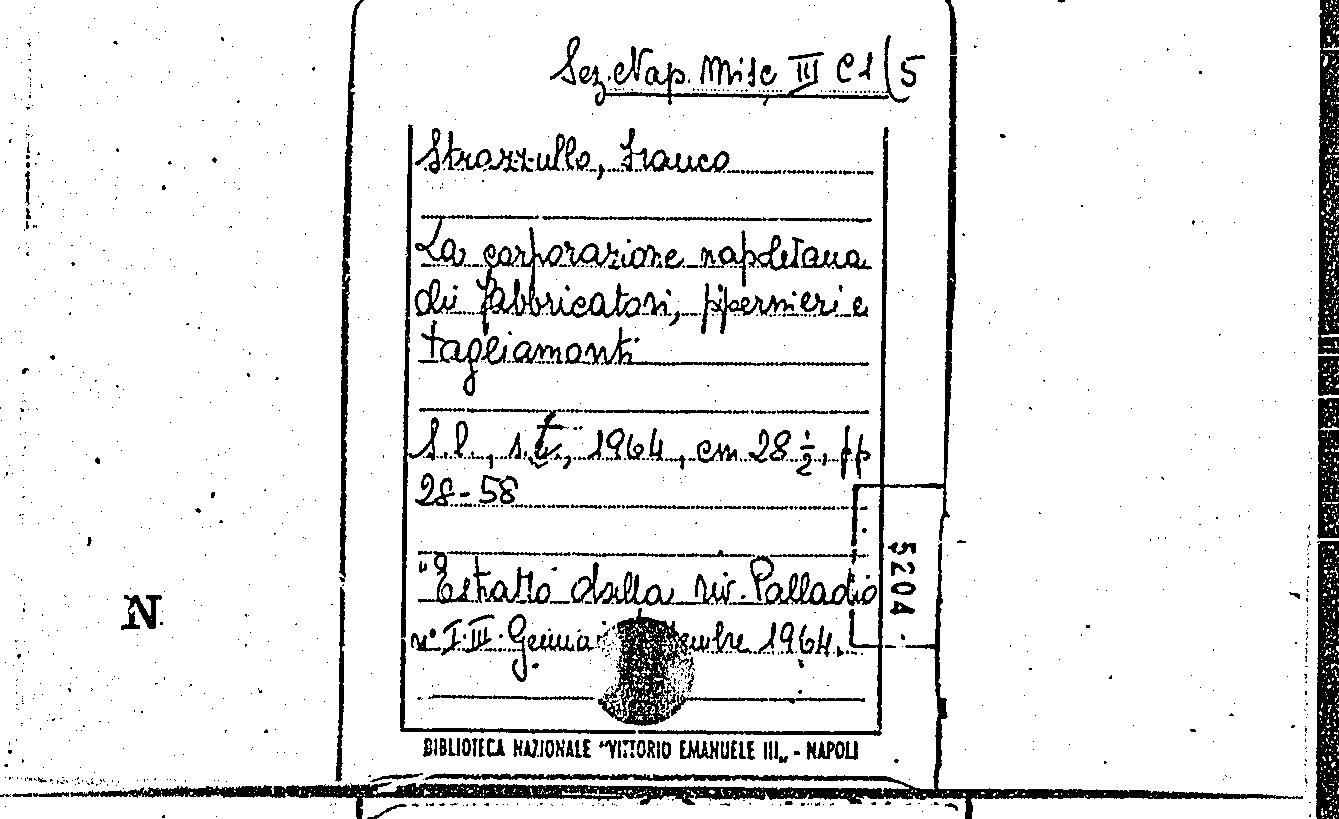 Sez. Nap. Misc III C1(5
Strazzullo, Franco
La corporazione napoletana
dei fabbricatori, pipernieri e
tagliamonti
S.l., s.t., 1964, cm 28 ½, pp
28-58
"Estratto dalla riv. Palladio
n° I-III Gennai embre 1964.
5204
N
BIBLIOTECA NAZIONALE "VITTORIO EMANUELE III„ - NAPOLI